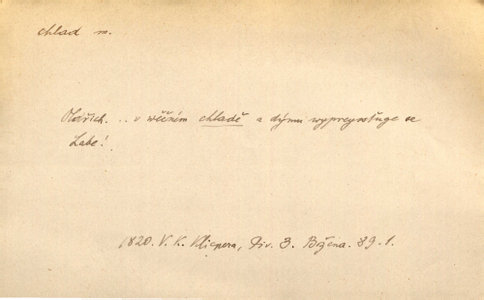 chlad m.
Oldřich. .. v wěčném chladě a dýmu wypreyskuge se
Labe!
1820. V. K. Klicpera, Div. 3. Božena. 89. 1.